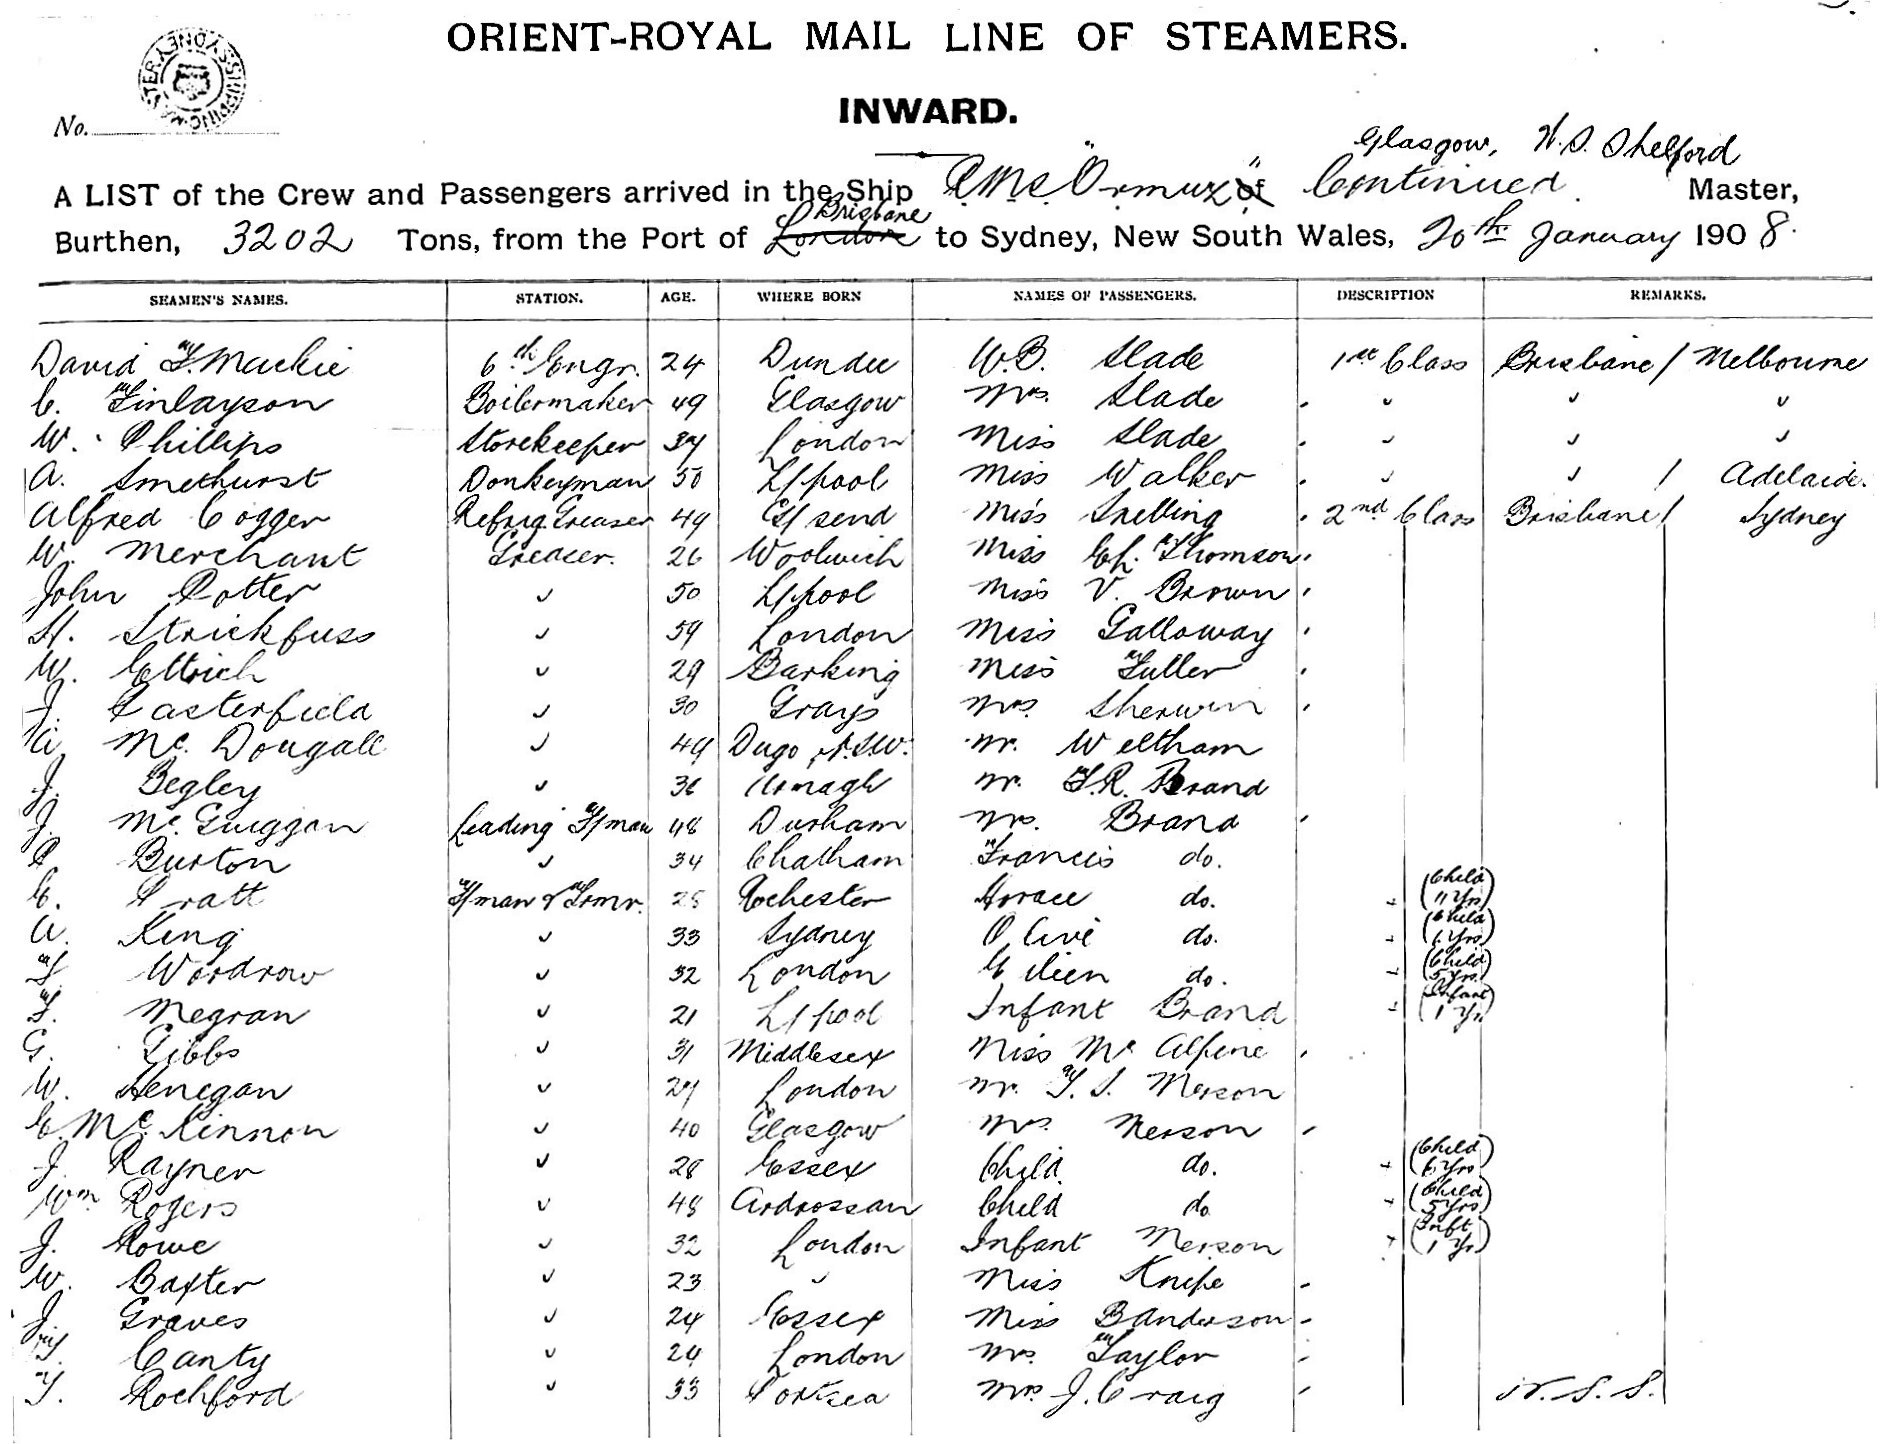 ORIENT-ROYAL MAIL LINE OF STEAMERS.
SYDNEY SHIPPING MASTER
No.
INWARD.
Glasgow, W. S. Shelford
A LIST of the Crew and Passengers arrived in the Ship RMS "Ormuz" of Continued Master,
Brisbane
Burthen, 3202 Tons, from the Port of London to Sydney, New South Wales, 20th January 1908.
SEAMEN'S NAMES. STATION. AGE. WHERE BORN NAMES OF PASSENGERS. DESCRIPTION REMARKS.
David F. Mackie 6th Engr. 24 Dundee W.B. Slade 1st Class Brisbane / Melbourne
C. Finlayson Boilermaker 49 Glasgow Mrs. Slade " " "
W. Phillips Storekeeper 37 London Miss Slade " " "
A. Smethurst Donkeyman 50 L/pool Miss Walker " " / Adelaide.
Alfred Cogger Refrig Greaser 49 G/send Miss Snelling 2nd Class Brisbane / Sydney
W. Merchant Greaser. 26 Woolwich Miss Ch. Thomson
John Potter " 50 L/pool Miss V. Brown
H. Strickfuss " 59 London Miss Galloway
W. Ettrich " 29 Barking Miss Fuller
J. Casterfield " 30 Grays Mrs. Sherwin
A. Mc. Dougall " 49 N.S.W. Mr. Weltham
J. Begley " 36 Armagh Mr. F.R. Brand
J. Mc. Guiggan Leading F/man 48 Durham Mrs. Brand
P. Burton " 34 Chatham Francis do.
E. Pratt F/man & Trmr. 25 Rochester Horace do. (Child 11 Yrs)
A. King " 33 Sydney Olive do. (Child Yrs)
F. Wordrow " 32 London Eileen do. (Child 5 Yrs)
F. Megran " 21 L/pool Infant Brand (Infant 1 Yr)
G. Gibbs " 31 Middlesex Miss Mc Alpine
W. Henegan " 27 London Mr. T. S. Merson
E. Mc. Kinnon " 40 Glasgow Mrs Merson
J. Rayner " 28 Essex Child do. (Child Yrs)
Wm Rogers " 48 Ardrossan Child do (Child 5 Yrs)
J. Rowe " 32 London Infant Merson (Inft 1 Yr)
W. Baxter " 23 " Miss Knipe
J. Graves " 24 Essex Miss Banderson
T. Canty " 24 London Mrs. Taylor
T. Rochford " 33 Portsea Mrs. J. Craig N. S. S.